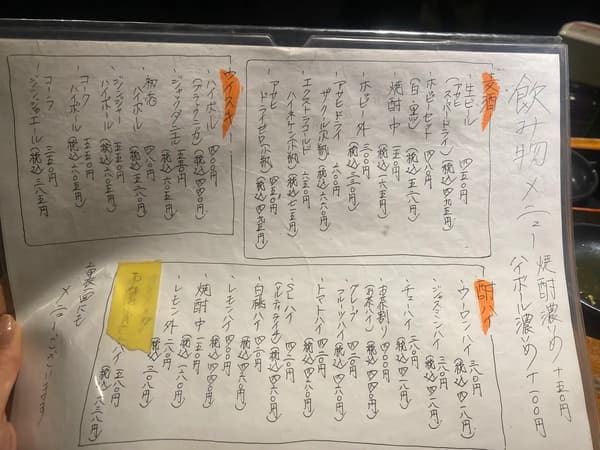 飲み物メニュー
焼酎濃め +五〇円
ハイボール濃め +一〇〇円
麦酒
・生ビール 四五〇円
(アサヒスーパードライ)(税込)四九五円
・ホッピーセット
(白・黒)
・焼酎中 一五〇円
(税込)一六五円
・ホッピー外 三〇〇円
(税込)三三〇円
・アサヒドライ 六〇〇円
(税込)六六〇円
・エクストラコールド
(税込)七一五円
・アサヒ
ドライゼロ
(税込)四九五円
ウイスキー
・ハイボール 四〇〇円
(ブラックニッカ)(税込)四四〇円
・ジャックダニエル 五五〇円
(税込)六〇五円
ハイボール 四八〇円
(税込)五二八円
・ジンジャー
ハイボール 五五〇円
(税込)六〇五円
・コーク
ハイボール 五五〇円
(税込)六〇五円
・コーラ 三五〇円
・ジンジャエール(税込)三八五円
酎ハイ
・ウーロンハイ 三八〇円
(税込)四一八円
・ジャスミンハイ 三八〇円
(税込)四一八円
・チューハイ 三八〇円
(税込)四一八円
・お茶割 四〇〇円
(お茶ハイ)(税込)四四〇円
・グレープ
フルーツハイ 四二〇円
(税込)四六二円
・トマトハイ 四二〇円
(税込)四六二円
・SLハイ 四二〇円
(税込)四六二円
・白桃ハイ 四二〇円
(税込)四六二円
・レモンハイ 四二〇円
(税込)四六二円
・焼酎中 一五〇円
(税込)一六五円
・レモン外
ハイ 五八〇円
(税込)六三八円
裏面にも
メニューございます